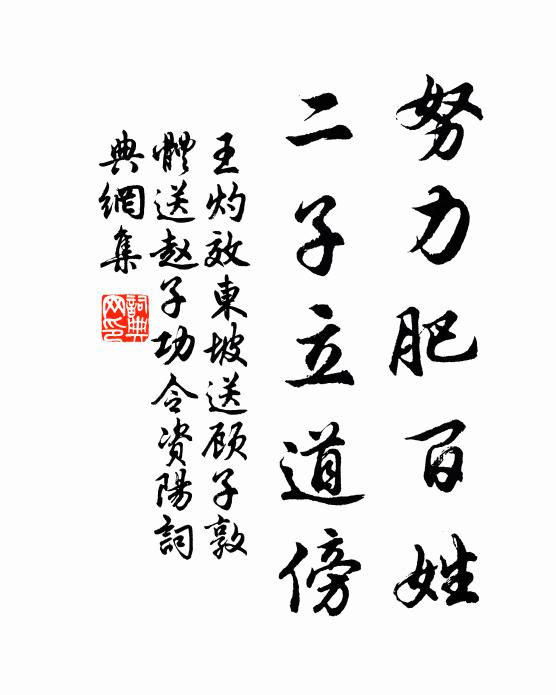 努力肥百姓
二子立道傍
王灼效東坡送顾子敦
體送赵子功令资陽詞
典網集
詞典
网印